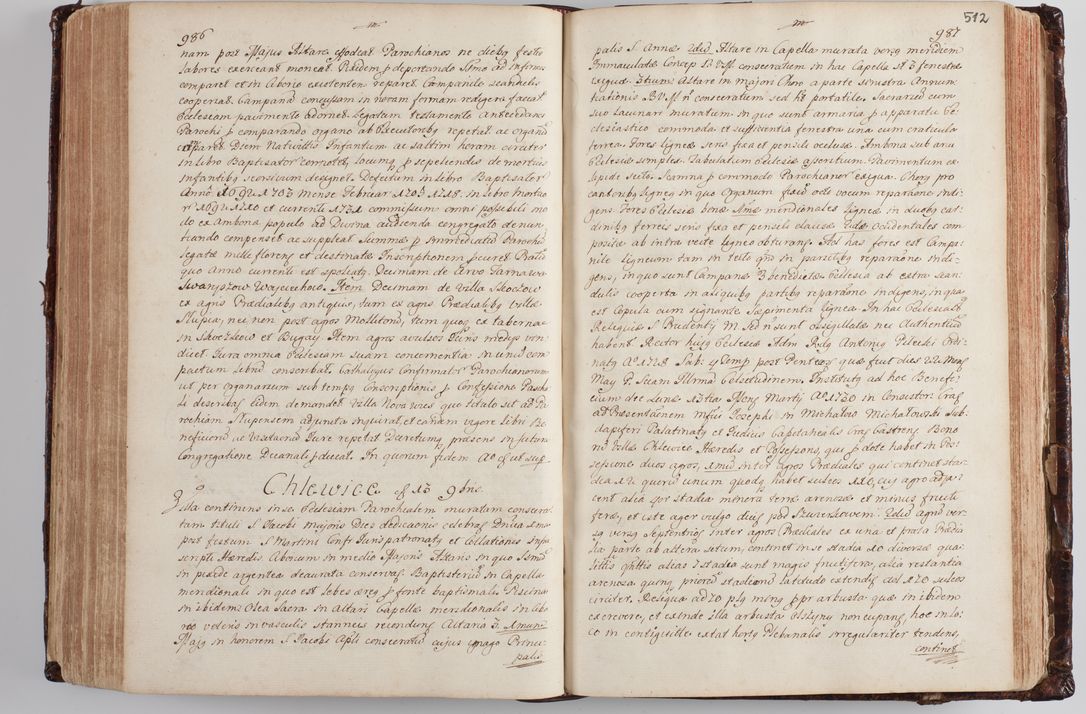 986
nam post Majus Altare effodeat Parochianos ne diebq festis
labores exerceant moneat. Baldem p deportando SSmo ad Infirmos
comparet et in Ciborio existentem reparet. Campanile scandulis
cooperiat. Campanã concussam in novam formam redigere faciat
Ecclesiam pavimento adornet. Legatum testamento Antecedanei
Parochi p comparando organo ab Executoribq repetat ac organũ
comparet. Diem Nativitis Infantum ac saltim horam circiter
in libro Baptisator connotet, locumq p sepeliendis de mortuis
Infantibq seorsivum designet. Defectum in libro Baptisator
Anno 1692 1703 mense Februar 1705 1718. in libro mortuo
r 1692 1710 et currenti 1731 commissum omni possibili mo
do ex ambona populo ad Divina audienda congregato denun
tiando compenset ac suppleat Summæ p Immediatũ Parochũ
legatæ mille florenq et destinatæ Inscriptionem pcuret Basis
quo Anno currenti est spoliatq. Decimam de Arvo Tarnawa
Swanyszow Wayciechow. Item Decimam de Villa Skoczow
ex agris Prædialibq antiquis, tum ex agris Prædialibq Villæ
Slupia, nec non post agros Mollitonũ, tum quoq ex tabernae
in Skoczkow et Bugay Item agros avulsos Juris medys ven
dicet Jura omnia Ecclesiam suam concernentia in unũ com
pactum librũ conscribat. Cathalogus Confirmator Parochianorum
ut per Organarium sub tempq Conscriptionis p Confessione Pascha
li describat eidem demandet. Villa Nova wies quo titulo sit ad Pa
rochiam Slupensem adjuncta inquirat, et eandem vigore libri Be
neficiorũ ac Visitaonũ Jure repetat Decretumq præsens in futura
Congregatione Decanali pducat. In quorum fidem. Ao et ut sup
Chlewice d 13 9bris.
Illa continens in se Ecclesiam Parochialem muratam consecra
tam tituli S Jacobi majoris Dies dedicaonis celebrat Dnica 1ma
post festum S Martini Confr Juris patronatq et Collationis Infra
scripti Hæredis Ciborium in medio Majoris Altaris in quo SSmũ
in pixide argentea deaurata conservat. Baptisteriũ in Capella
meridionali in quo est lebes æreq p fonte baptismali. Piscina
in ibidem Olea Sacra in Altari Capellæ meridionalis in libo
reo veteris in vasculis stanneis recondunt Altaria 3. 1mum
Majq in honorem S Jacobi Apli consecratũ cujus imago Princi-
palis
987
512
palis S Annæ 2dũ Altare in Capella murata versq meridiem
Immaculatæ Concep B. V. M. consecratum in hac Capella St 3 fenestræ
exiguæ 3tium Altare in majori Choro a parte sinistra Annun-
tiationis B V M n consecratum sed ht portatile. Sacrariũ cum
suo launari muratum in quo sunt armaria p apparatu Ec
clesiastico commoda, et sufficientia fenestra una cum craticula
ferrea. Fores ligneæ seris fixa et pensili oclusæ. Ambona sub arcu
Ecclesiæ simplex. Tabulatum Ecclesiæ assentium. Pavimentum ex
lapide secto. Scamna p commodo Parochianor exigua. Chorq pro
cantoribq ligneq in quo Organum fixũ octo vocum reparaõne indi-
gens. Fores Ecclesiæ binæ 1mæ meridionales ligneæ in duobq car-
dinibq ferreis sens fixa et pensili clausæ 2dæ ocidentales com
positæ ab intra vecte ligneo obturant. Ad has fores est Campa-
nile ligneum tam in tecto qm in parietibq reparaõne indi-
gens, in quo sunt Campanæ 3 benedictæ. Ecclesia ab extra scan-
dulis cooperta in aliquibq partibq reparaõne indigens, in qua
est Copula cum signante Coepimenta lignea. In hac Ecclesia St
Reliquiæ S Prudentij M. Sed n sunt obsigillatæ nec Authenticũ
habent. Rector hujq Ecclesiæ Adm Rdq Antonius Pelecki Ordi-
natq Ao 1728 Sab: 4 Temp post Pentecos quæ fuit dies 22 Mens
May P. Suam Illrmã Celsitudinem. Institutq ad hoc Benefi-
cium die Lunæ 13tia Mens Martij Ao 1730 in Consistor. Crac
ad Præsentaõnem Mfici Josephi in Michalow Michalowski Sub-
dapiferi Palatinatq et Judicis Capitanealis Crac Castrenq Bono
ru Villæ Chlewice Hæredis et Possessoris, qui p dote habet in Pos-
sessione duos agros, 1mũ inter agros Prædiales qui continet sta-
dia 12 quorũ unum quodq habet sulcos 110, cuiq agro adja-
cent alia qor stadia minora terræ arenosæ et minus fructi
feræ, et iste ager vulgo dicit pod Szczerskowem. 2dũ agrũ ver-
sq versq Septentrioq inter agros Prædiales ex una et prata Prædia
lia parte ab altera situm, continet in se stadia 10 diversæ qua-
litis glittis alias 7 stadia sunt magis fructifera, alia restantia
arenosa quinq priorũ stadiorũ latitudo extendit ad 120 sulcos
circiter. Reliqua ad 20 plq minq ppr arbusta quæ in ibidem
excrevere, et exinde illa arbusta Olszyny noncupant, hoc in lo-
co in contiguitte extat hortq Plebanalis irregulariter tendens,
continet